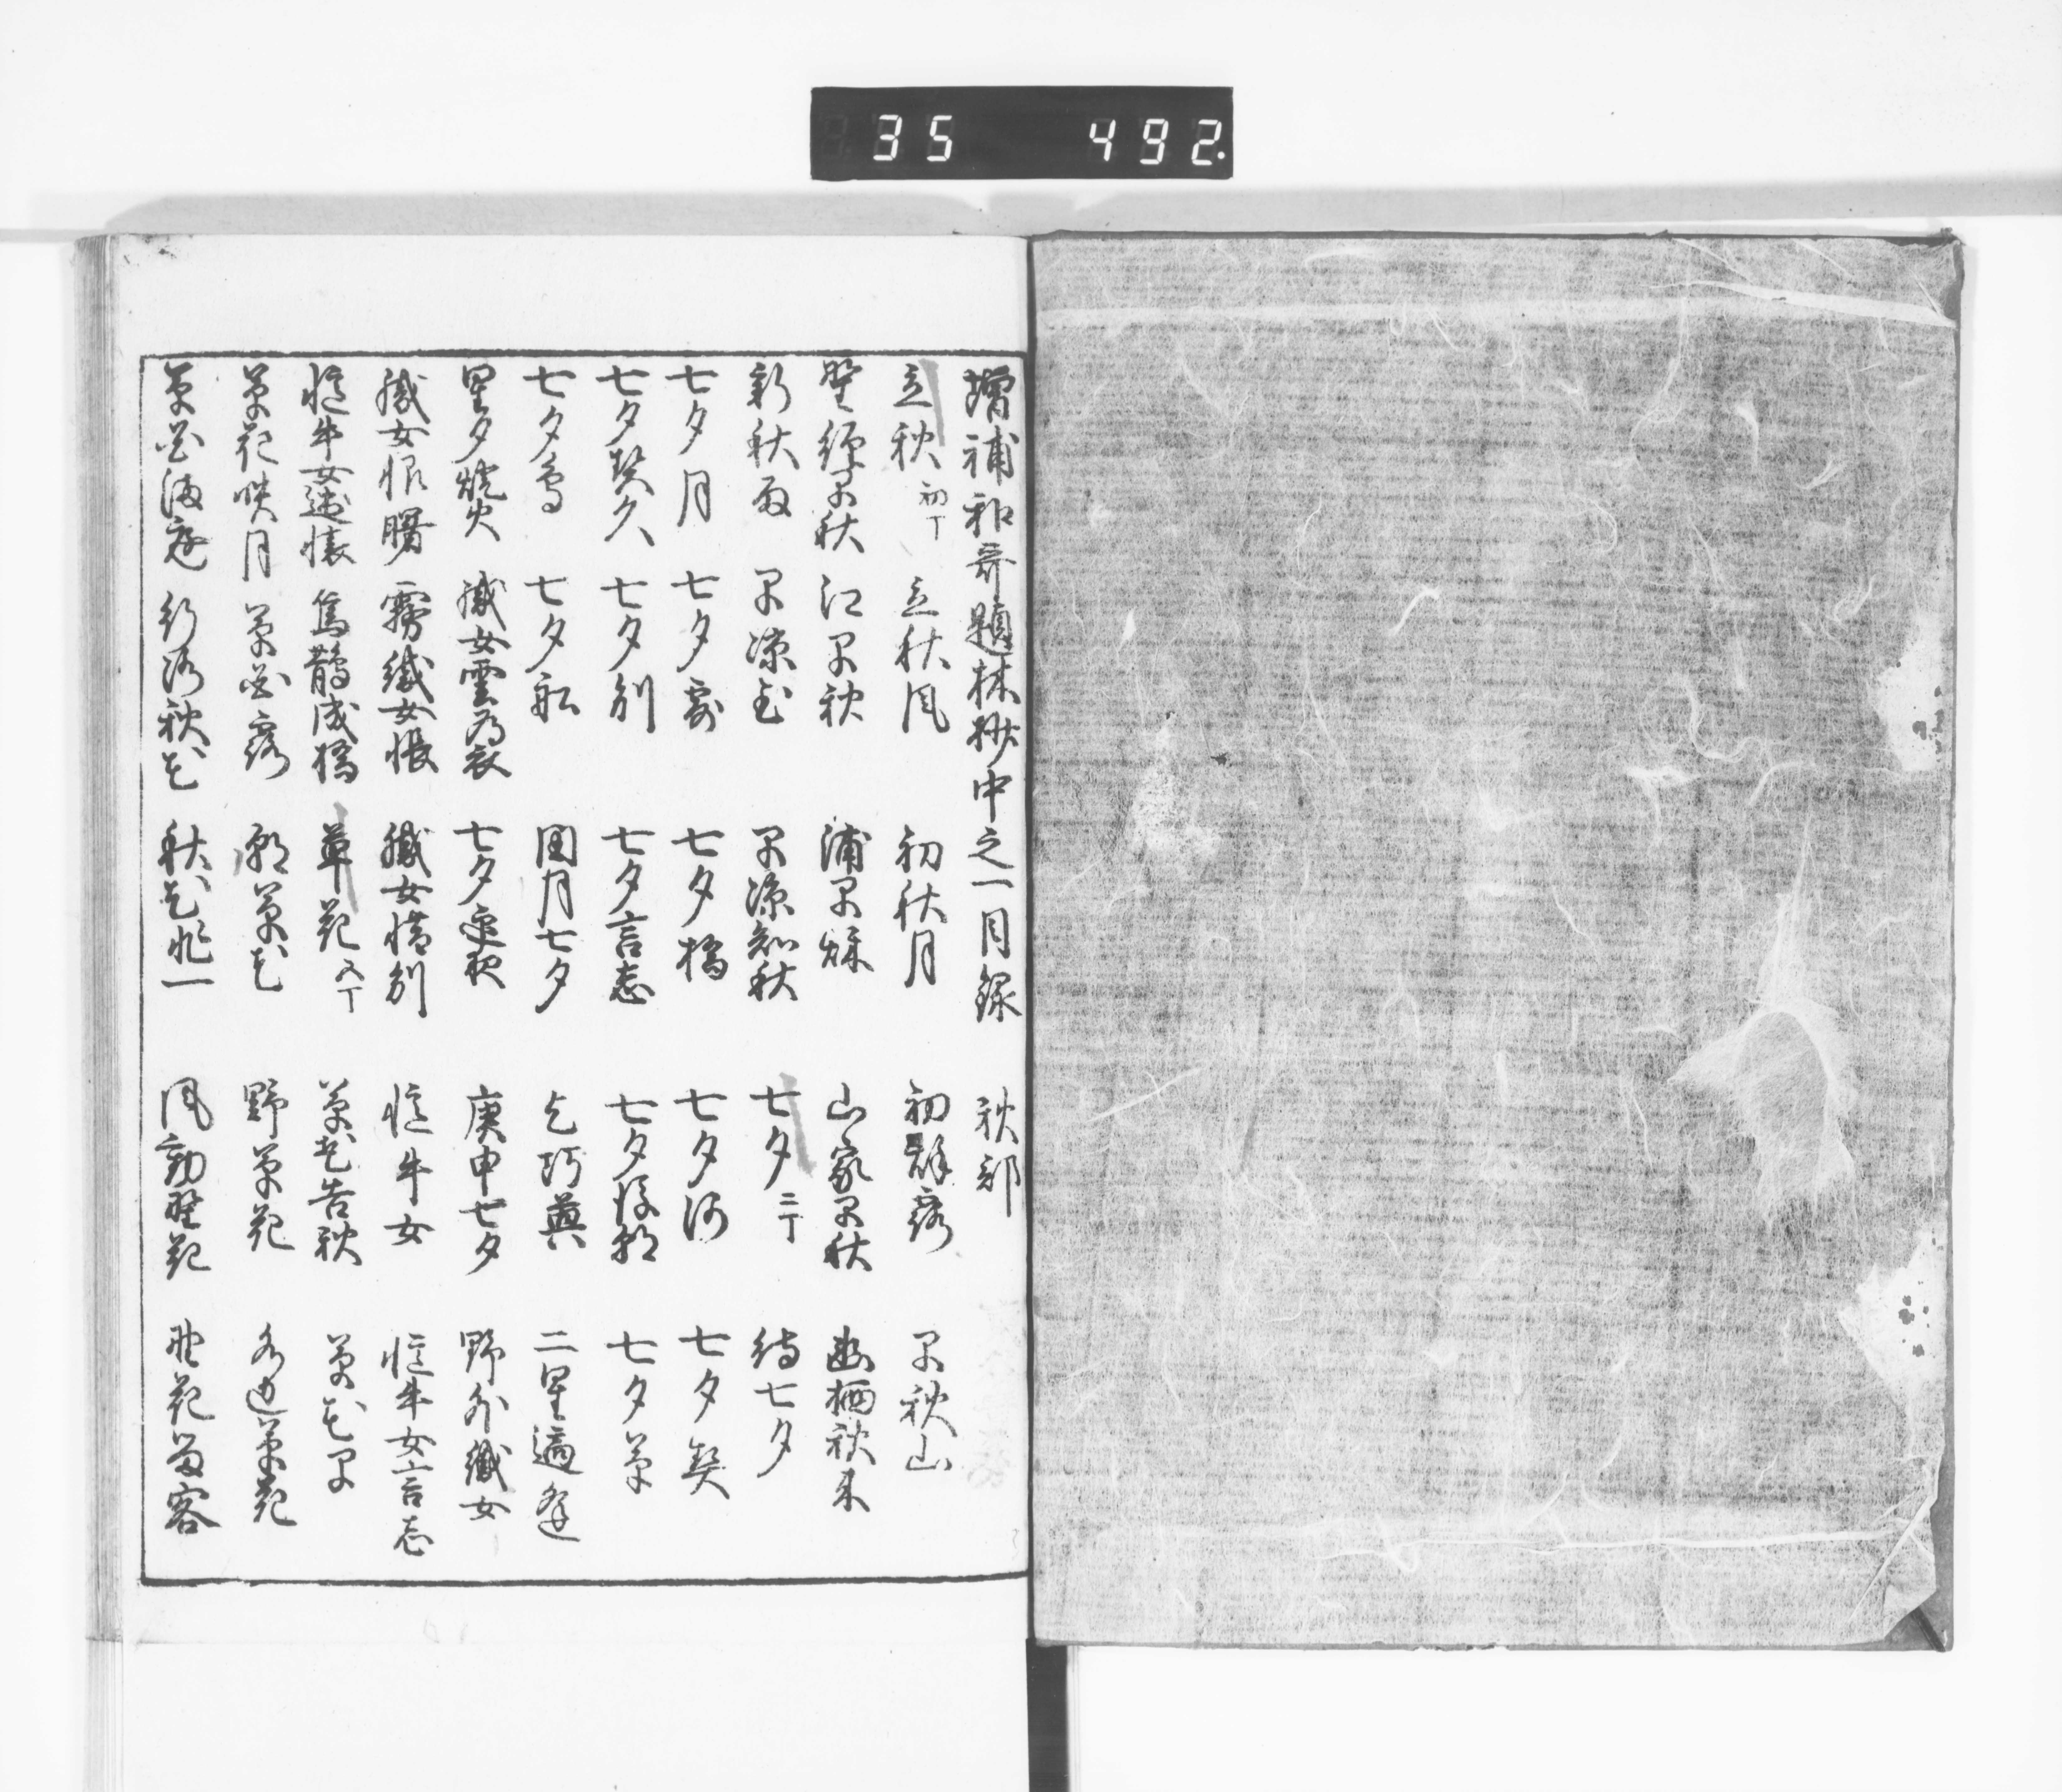 35 492.
増補和哥題林抄中之一目録 秋部
立秋 初丁 立秋風 初秋月 初秋露 早秋山
野径早秋 江早秋 浦早秋 山家早秋 幽栖秋来
新秋雨 早涼至 早涼知秋 七夕 二丁 待七夕
七夕月 七夕霧 七夕橋 七夕河 七夕契
七夕契久 七夕別 七夕言志 七夕後朝 七夕草
七夕鳥 七夕船 閏月七夕 乞巧奠 二星適逢
星夕燈火 織女雲為衣 七夕連夜 庚申七夕 野外織女
織女恨曙 霧織女帳 織女惜別 憶牛女 憶牛女言志
憶牛女述懐 烏鵲成橋 草花 五丁 草花告秋 草花早
草花映月 草花露 朝草花 野草花 水辺草花
草花満庭 行路秋花 秋花非一 風動野花 野花留客